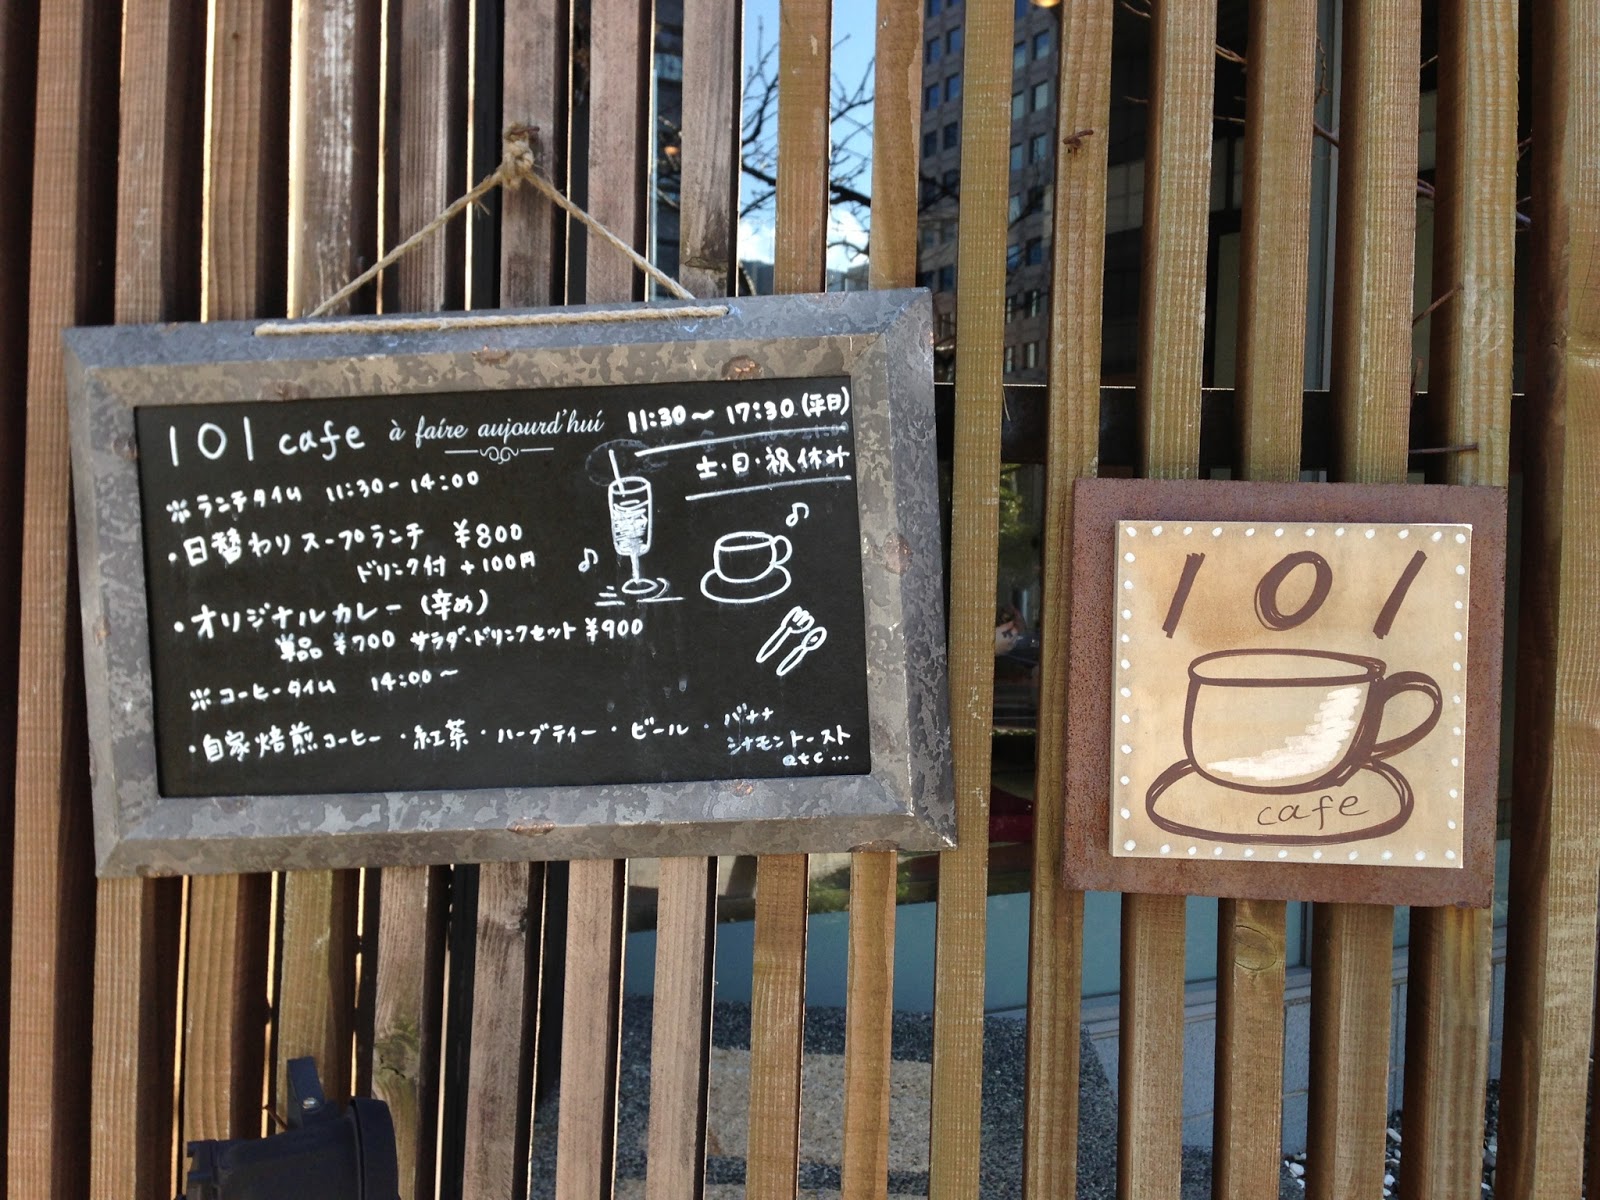 101 cafe à faire aujourd'hui 11:30〜17:30(平日)
土・日・祝休み
※ランチタイム 11:30-14:00
・日替わりスープランチ ¥800
ドリンク付 +100円
・オリジナルカレー(辛め)
単品 ¥700 サラダ・ドリンクセット ¥900
※コーヒータイム 14:00〜
・自家焙煎コーヒー ・紅茶・ハーブティー・ビール・バナナ
シナモントースト
etc...
101
cafe